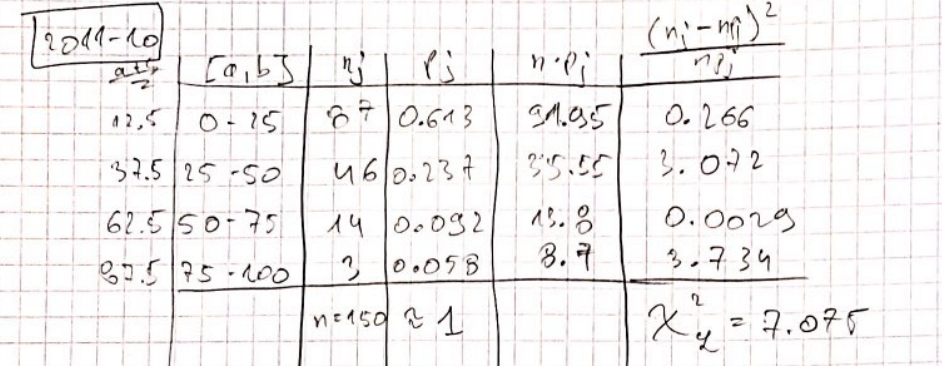 2011-10
a+b/2 | [a,b] | nj | pj | n·pj | (nj-npj)²/npj
12,5 | 0-25 | 87 | 0.613 | 91.95 | 0.266
37.5 | 25-50 | 46 | 0.237 | 35.55 | 3.072
62.5 | 50-75 | 14 | 0.092 | 13.8 | 0.0029
87.5 | 75-100 | 3 | 0.058 | 8.7 | 3.734
n=150 | ≈ 1 | | χ² = 7.075